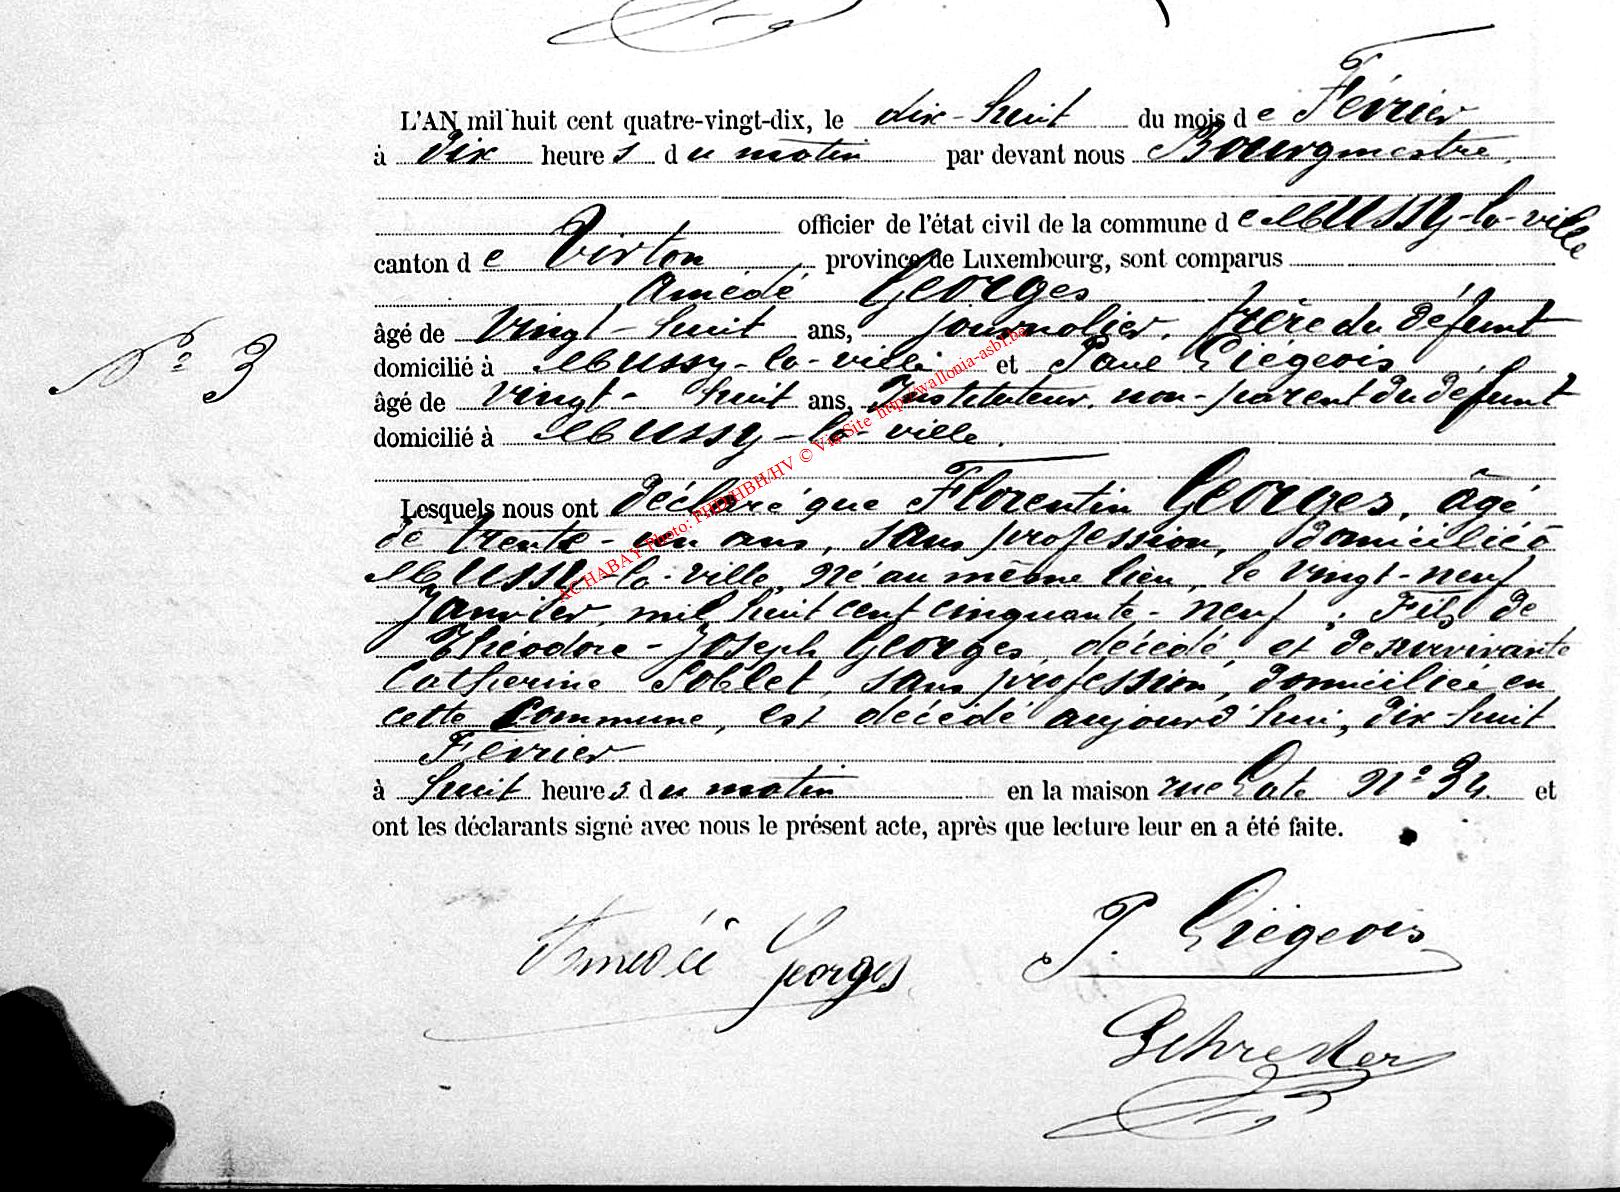 L'AN mil huit cent quatre-vingt-dix, le dix-huit du mois de Février
à dix heures du matin par devant nous Bourgmestre,
officier de l'état civil de la commune de Mussy-la-ville
canton de Virton, province de Luxembourg, sont comparus
Amédé Georges
âgé de vingt-huit ans, journalier, frère du défunt
domicilié à Mussy-la-ville et Paul Liégeois
âgé de vingt-huit ans, Instituteur, non-parent du défunt
domicilié à Mussy-la-ville.
N° 3
Lesquels nous ont déclaré que Florentin Georges, âgé
de trente-un ans, sans profession, domicilié à
Mussy-la-ville, né au même lieu, le vingt-neuf
Janvier, mil huit cent cinquante-neuf; Fils de
Théodore-Joseph Georges, décédé, et de survivante
Catherine Poblet, sans profession, domiciliée en
cette Commune, est décédé aujourd'hui, dix-huit
Février
à huit heures du matin en la maison rue N° 34. et
ont les déclarants signé avec nous le présent acte, après que lecture leur en a été faite.
Amédéé Georges
P. Liégeois
ACHABAY Photo: PHD/HBH/HV © Via Site http://wallonia-asbl.be